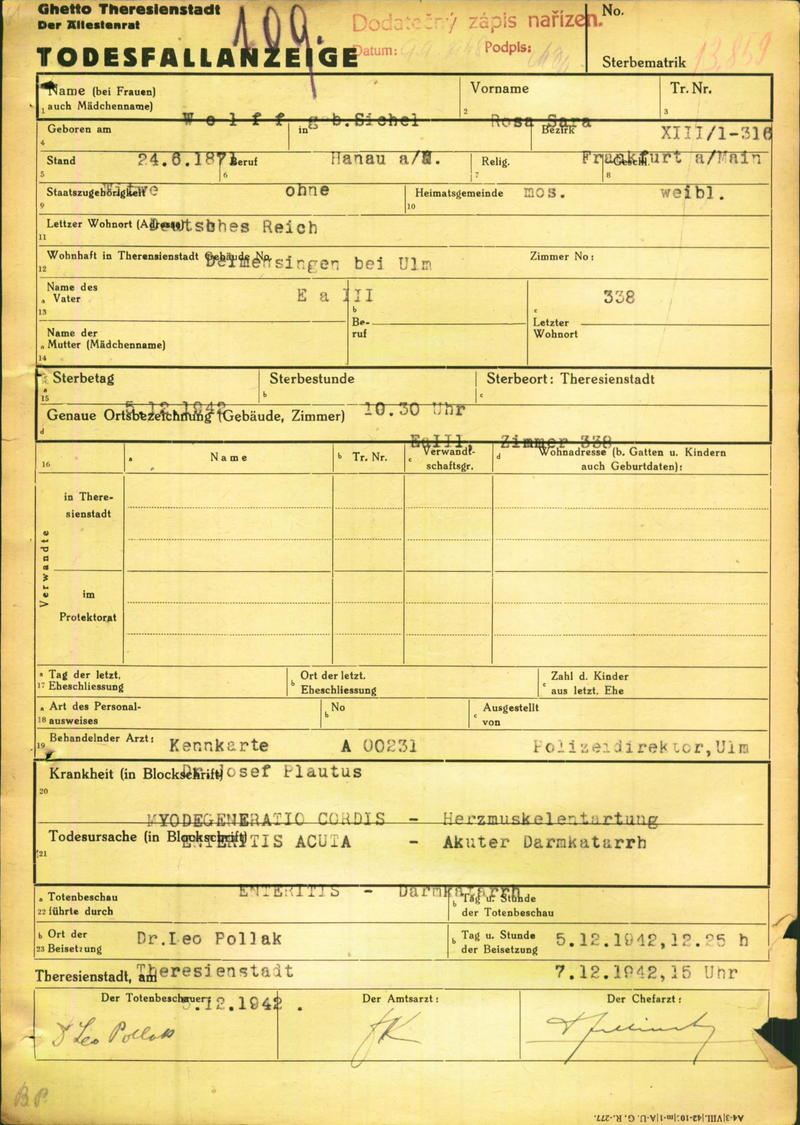 Ghetto Theresienstadt
Der Ältestenrat
109.
TODESFALLANZEIGE
Dodatečný zápis nařízen.
Datum: Podpis:
No.
Sterbematrik 13.859
Name (bei Frauen) Vorname Tr. Nr.
1 auch Mädchenname) 2 3
Wolff geb.Sichel Rosa Sara XIII/1-316
Geboren am in Bezirk
4
24.6.1871 Hanau a/M. Frankfurt a/Main
Stand Beruf Relig. Geschl.
5 6 7 8
Witwe ohne mos. weibl.
Staatszugehörigkeit Heimatsgemeinde
9 10
Deutsches Reich
Letzter Wohnort (Adresse)
11
Dellmensingen bei Ulm
Wohnhaft in Theresienstadt Gebäude No. Zimmer No:
12
E a III 338
Name des
a Vater
13
b Be-
ruf
c Letzter
Wohnort
Name der
a Mutter (Mädchenname)
14
Sterbetag Sterbestunde Sterbeort: Theresienstadt
a b c
15
5.12.1942 10.30 Uhr
Genaue Ortsbezeichnung (Gebäude, Zimmer)
d
EaIII, Zimmer 338
16 a Name b Tr. Nr. c Verwandt-
schaftsgr. d Wohnadresse (b. Gatten u. Kindern
auch Geburtdaten):
Verwandte
in There-
sienstadt
im
Protektorat
a Tag der letzt.
17 Eheschliessung
b Ort der letzt.
Eheschliessung
c Zahl d. Kinder
aus letzt. Ehe
a Art des Personal-
18 ausweises
b No
c Ausgestellt
von
Kennkarte A 00231 Polizeidirektor,Ulm
Behandelnder Arzt:
19
Dr.Josef Plautus
Krankheit (in Blockschrift)
20
MYODEGENERATIO CORDIS - Herzmuskelentartung
ENTERITIS ACUTA - Akuter Darmkatarrh
Todesursache (in Blockschrift)
21
ENTERITIS - Darmkatarrh
a Totenbeschau
22 führte durch
b Tag u. Stunde
der Totenbeschau
Dr.Leo Pollak 5.12.1942,12.25 h
b Ort der
23 Beisetzung
b Tag u. Stunde
der Beisetzung
Theresienstadt 7.12.1942,15 Uhr
Theresienstadt, am
.12.1942.
Der Totenbeschauer: Der Amtsarzt: Der Chefarzt:
Dr Leo Pollak
BP.
A4-3|VIII,|42-10:|m-1|A-U. G. R.-277.